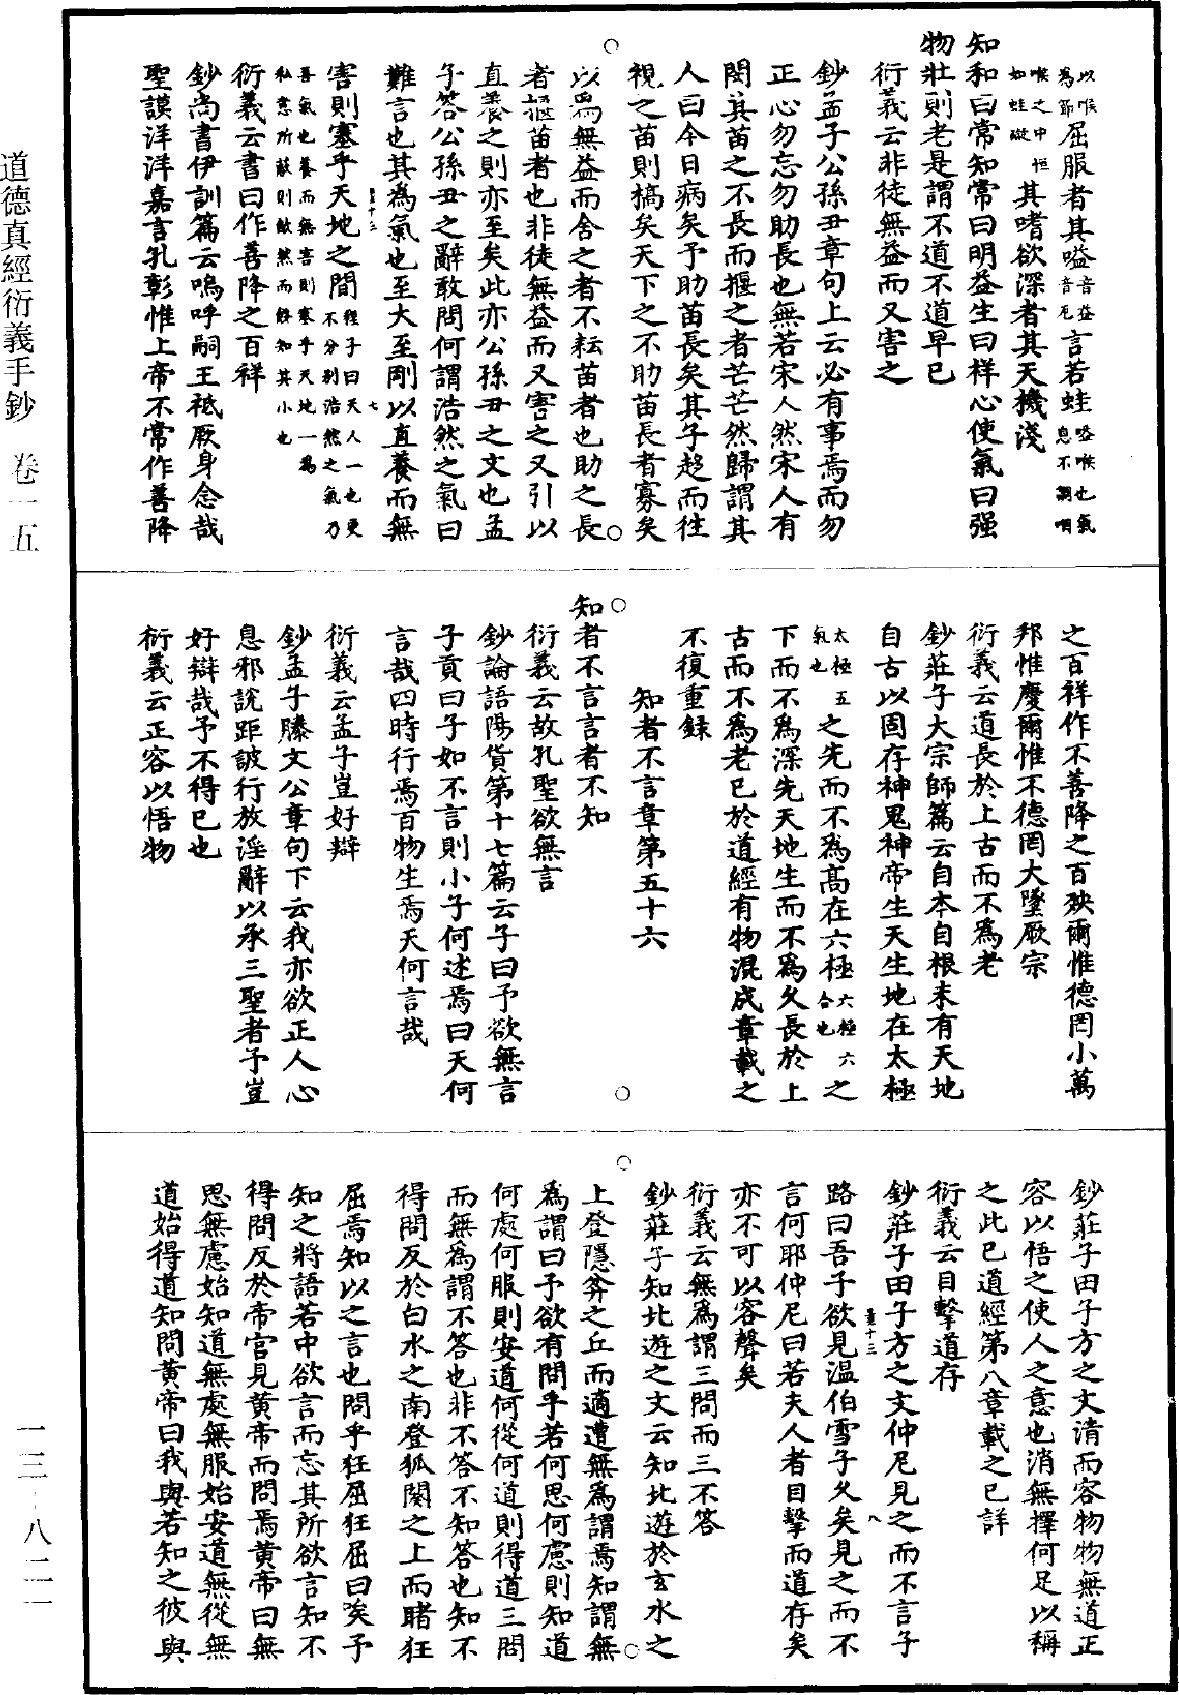 以喉
為節屈服者其嗌音益音厄言若蛙咯喉也氣息不調咽
喉之中恒
如蛙礙其嗜欲深者其天機淺
知和曰常知常曰明益生曰祥心使氣曰强
物壯則老是謂不道不道早已
衍義云非徒無益而又害之
鈔孟子公孫丑章句上云必有事焉而勿
正心勿忘勿助長也無若宋人然宋人有
閔其苗之不長而揠之者芒芒然歸謂其
人曰今日病矣予助苗長矣其子趨而往
視之苗則槁矣天下之不助苗長者寡矣
以為無益而舍之者不耘苗者也助之長
者揠苗者也非徒無益而又害之又引以
直養之則亦至矣此亦公孫丑之文也孟
子答公孫丑之辭敢問何謂浩然之氣曰
難言也其為氣也至大至剛以直養而無
害則塞乎天地之間程子曰天人一也更不分別浩然之氣乃
吾氣也養而無害則塞乎天地一為
私意所蔽則欿然而餒知其小也
衍義云書曰作善降之百祥
鈔尚書伊訓篇云嗚呼嗣王祗厥身念哉
聖謨洋洋嘉言孔彰惟上帝不常作善降
之百祥作不善降之百殃爾惟德罔小萬
邦惟慶爾惟不德罔大墜厥宗
衍義云道長於上古而不為老
鈔莊子大宗師篇云自本自根未有天地
自古以固存神鬼神帝生天生地在太極
太極五氣也之先而不為高在六極六極六合也之
下而不為深先天地生而不為久長於上
古而不為老已於道經有物混成章載之
不復重録
知者不言章第五十六
知者不言言者不知
衍義云故孔聖欲無言
鈔論語陽貨第十七篇云子曰予欲無言
子貢曰子如不言則小子何述焉曰天何
言哉四時行焉百物生焉天何言哉
衍義云孟子豈好辯
鈔孟子滕文公章句下云我亦欲正人心
息邪說距詖行放淫辭以承三聖者予豈
好辯哉予不得已也
衍義云正容以悟物
鈔莊子田子方之文清而容物物無道正
容以悟之使人之意也消無擇何足以稱
之此已道經第八章載之已詳
衍義云目擊道存
鈔莊子田子方之文仲尼見之而不言子
路曰吾子欲見温伯雪子久矣見之而不
言何耶仲尼曰若夫人者目擊而道存矣
亦不可以容聲矣
衍義云無為謂三問而三不答
鈔莊子知北遊之文云知北遊於玄水之
上登隱弅之丘而適遭無為謂焉知謂無
為謂曰予欲有問乎若何思何慮則知道
何處何服則安道何從何道則得道三問
而無為謂不答也非不答不知答也知不
得問反於白水之南登狐闋之上而睹狂
屈焉知以之言也問乎狂屈狂屈曰唉予
知之將語若中欲言而忘其所欲言知不
得問反於帝宮見黄帝而問焉黄帝曰無
思無慮始知道無處無服始安道無從無
道始得道知問黄帝曰我與若知之彼與
道德真經衍義手鈔 卷一五
一三–八二一